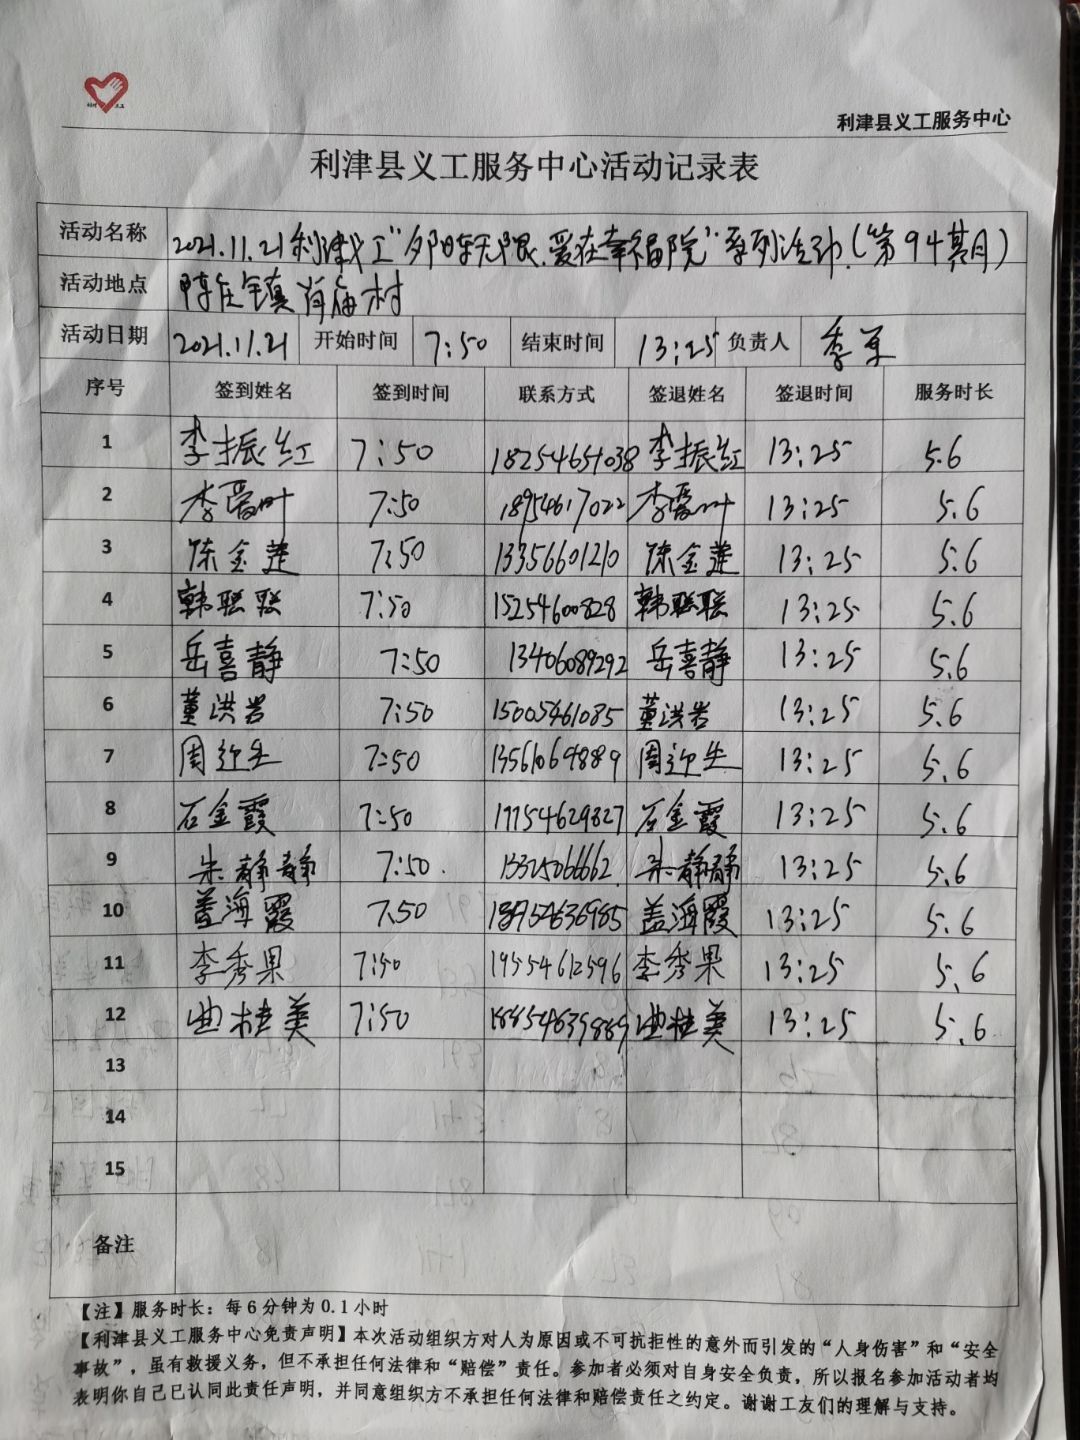 利津县义工服务中心
利津县义工服务中心活动记录表
活动名称 2021.11.21利津义工“夕阳无限.爱在幸福院”系列活动.(第94期)
活动地点 陈庄镇肖庙村
活动日期 2021.11.21 开始时间 7:50 结束时间 13:25 负责人 季军
序号 签到姓名 签到时间 联系方式 签退姓名 签退时间 服务时长
1 李振红 7:50 18254651038 李振红 13:25 5.6
2 李爱叶 7:50 18954617022 李爱叶 13:25 5.6
3 陈金莲 7:50 13356601210 陈金莲 13:25 5.6
4 韩联联 7:50 15254600828 韩联联 13:25 5.6
5 岳喜静 7:50 13406089292 岳喜静 13:25 5.6
6 董洪岩 7:50 15005461085 董洪岩 13:25 5.6
7 周迎生 7:50 13561064889 周迎生 13:25 5.6
8 石金霞 7:50 19954629827 石金霞 13:25 5.6
9 朱静静 7:50. 13325066662. 朱静静 13:25 5.6
10 盖海霞 7.50 18954636985 盖海霞 13:25 5.6
11 李秀果 7:50 19554612596 李秀果 13:25 5.6
12 曲桂美 7:50 18854639889 曲桂美 13:25 5.6
13
14
15
备注
【注】服务时长：每6分钟为0.1小时
【利津县义工服务中心免责声明】本次活动组织方对人为原因或不可抗拒性的意外而引发的“人身伤害”和“安全
事故”，虽有救援义务，但不承担任何法律和“赔偿”责任。参加者必须对自身安全负责，所以报名参加活动者均
表明你自己已认同此责任声明，并同意组织方不承担任何法律和赔偿责任之约定。谢谢工友们的理解与支持。